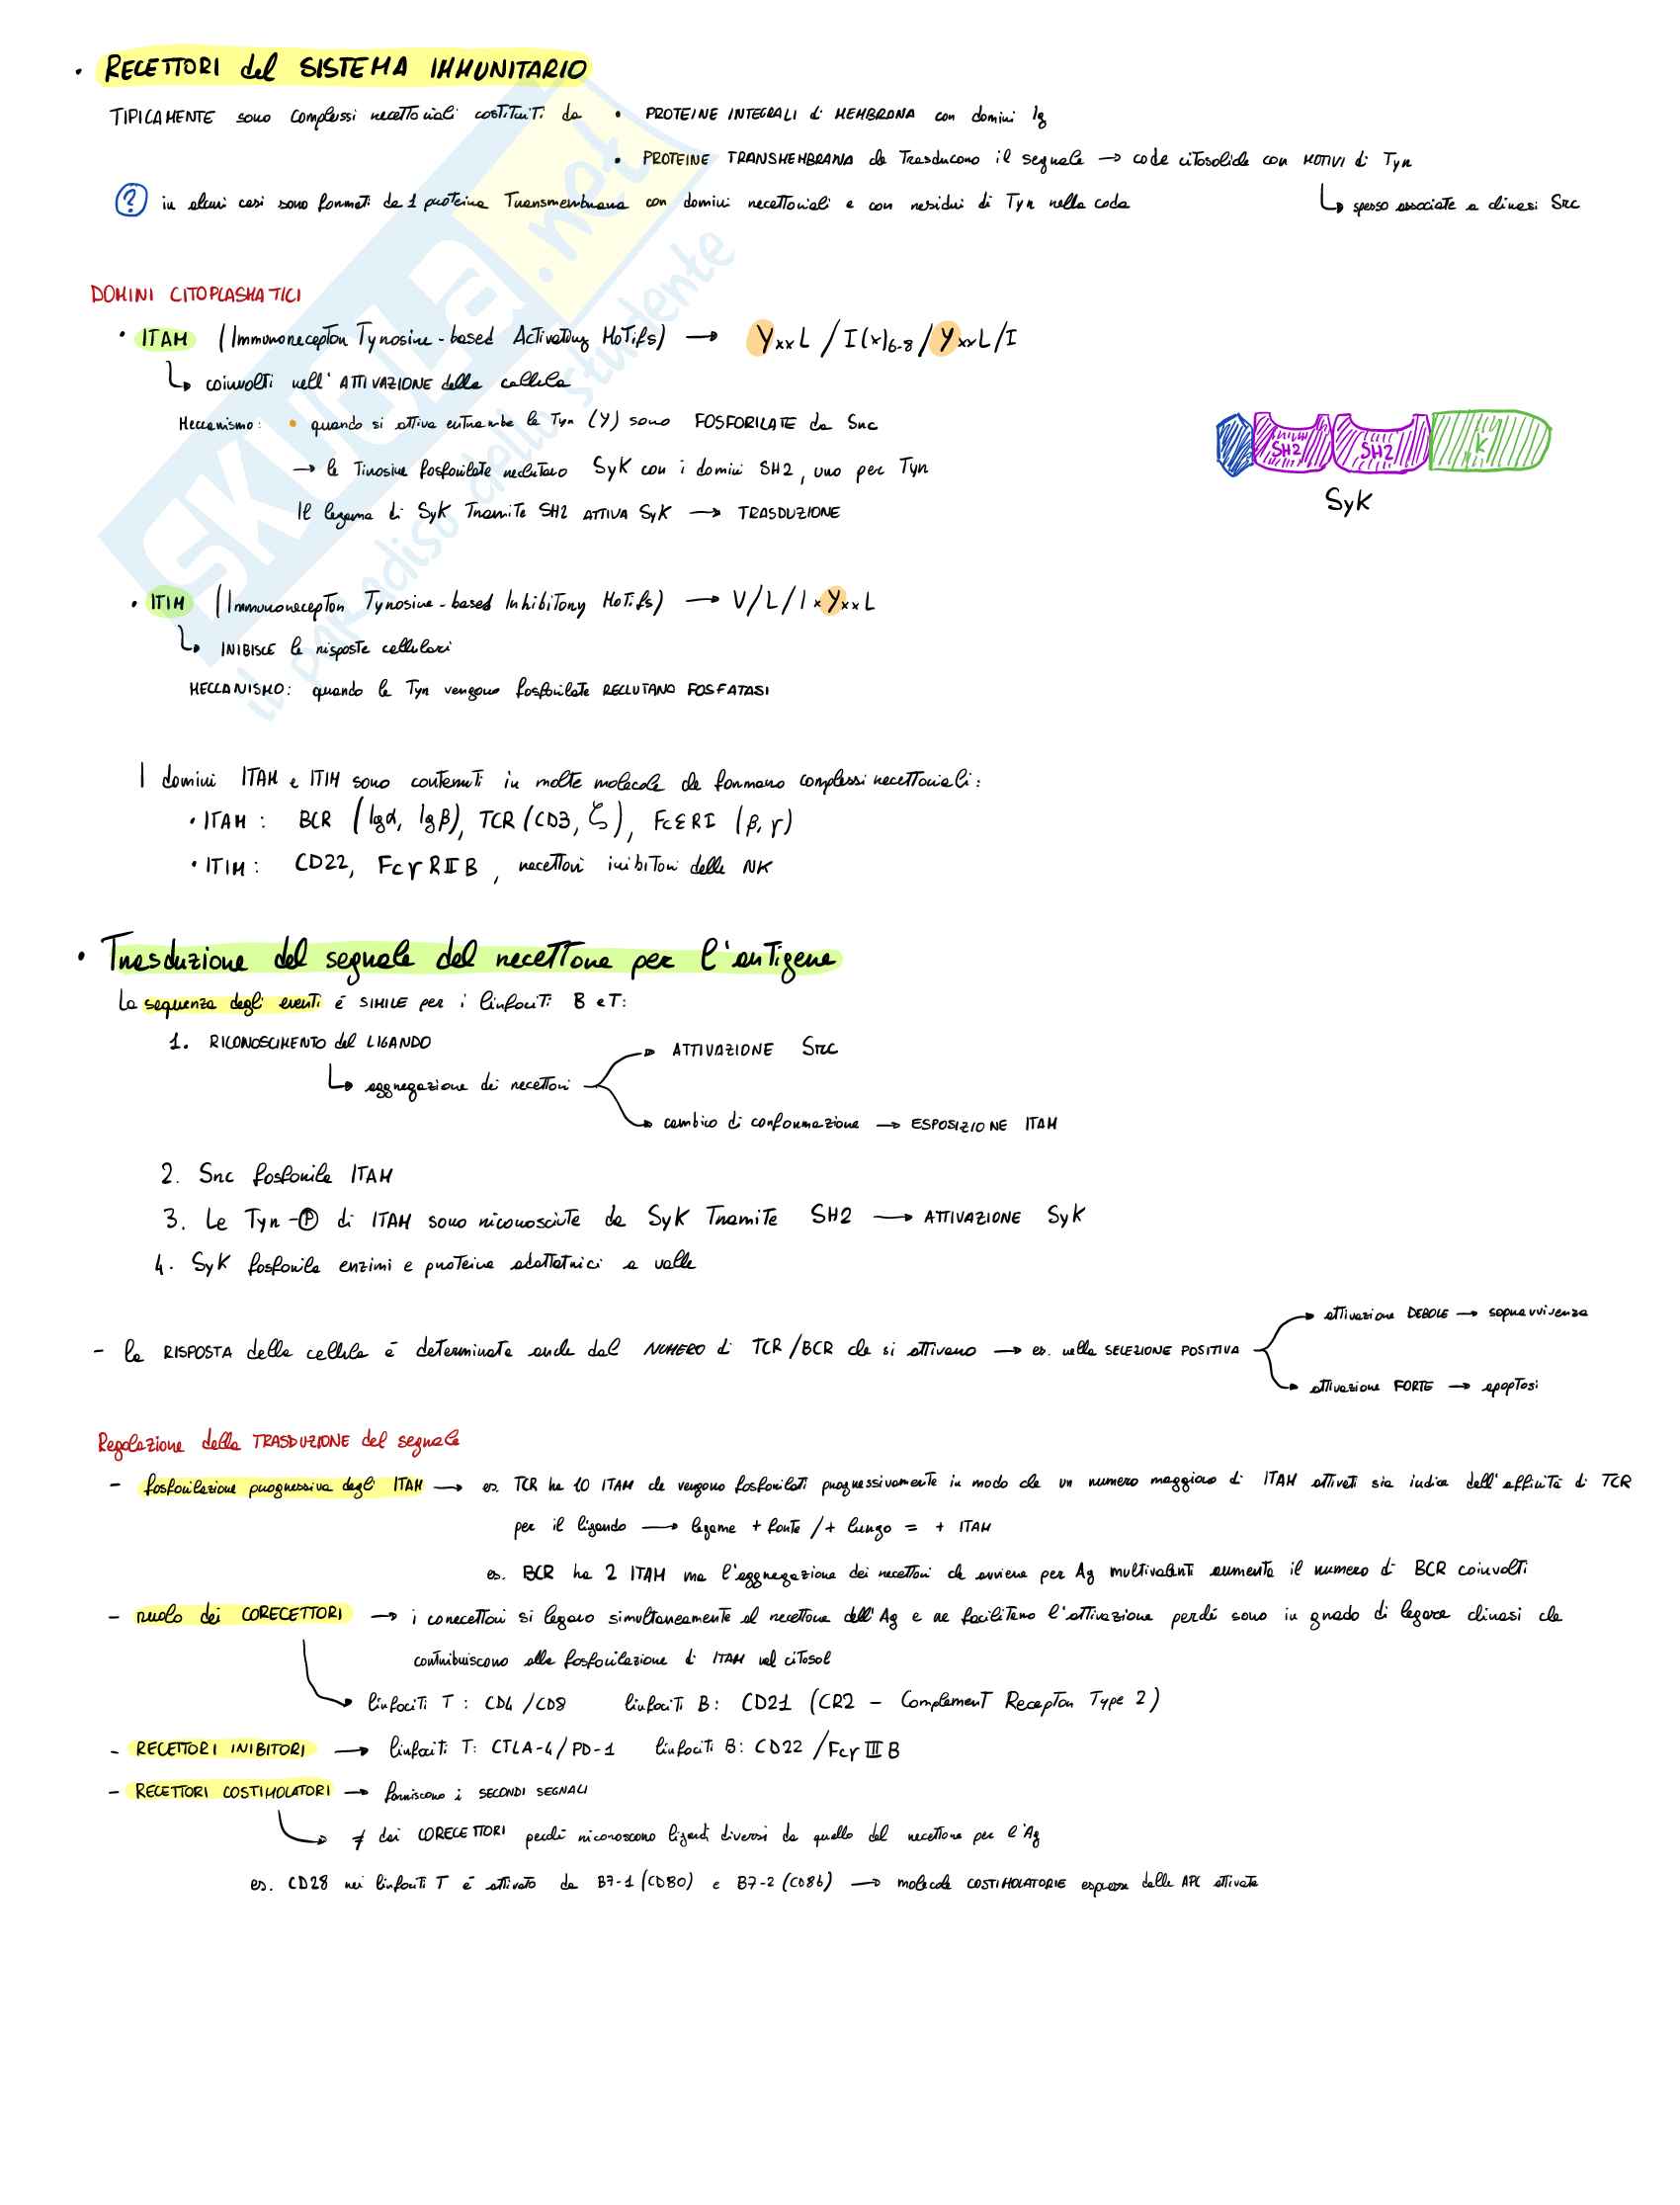 • RECETTORI del SISTEMA IMMUNITARIO
TIPICAMENTE sono complessi recettoriali costituiti da • PROTEINE INTEGRALI di MEMBRANA con domini Ig
• PROTEINE TRANSMEMBRANA che trasducono il segnale → code citosoliche con MOTIVI di Tyr
? in alcuni casi sono formati da 1 proteina transmembrana con domini recettoriali e con residui di Tyr nella coda
↳ spesso associate a chinasi Src
DOMINI CITOPLASMATICI
• ITAM (Immunoreceptor Tyrosine-based Activating Motifs) → YxxL/I(x)6-8/YxxL/I
↳ coinvolti nell'ATTIVAZIONE della cellula
Meccanismo: • quando si attiva entrambe le Tyr (Y) sono FOSFORILATE da Src
→ le Tirosine fosforilate reclutano SyK con i domini SH2, uno per Tyr
Il legame di SyK tramite SH2 ATTIVA SyK → TRASDUZIONE
SH2 SH2 K
SyK
• ITIM (Immunoreceptor Tyrosine-based Inhibitory Motifs) → V/L/IxYxxL
↳ INIBISCE le risposte cellulari
MECCANISMO: quando le Tyr vengono fosforilate RECLUTANO FOSFATASI
I domini ITAM e ITIM sono contenuti in molte molecole che formano complessi recettoriali:
• ITAM: BCR (Igα, Igβ), TCR (CD3, ζ), FcεRI (β, γ)
• ITIM: CD22, FcγRIIB, recettori inibitori delle NK
• Trasduzione del segnale del recettore per l'antigene
La sequenza degli eventi é SIMILE per i linfociti B e T:
1. RICONOSCIMENTO del LIGANDO
→ ATTIVAZIONE Src
↳ aggregazione dei recettori
→ cambio di conformazione → ESPOSIZIONE ITAM
2. Src fosforila ITAM
3. Le Tyr-P di ITAM sono riconosciute da SyK tramite SH2 → ATTIVAZIONE SyK
4. SyK fosforila enzimi e proteine adattatrici a valle
→ attivazione DEBOLE → sopravvivenza
- la RISPOSTA della cellula é determinata anche dal NUMERO di TCR/BCR che si attivano → es. nella SELEZIONE POSITIVA
→ attivazione FORTE → apoptosi
Regolazione della TRASDUZIONE del segnale
- fosforilazione progressiva degli ITAM → es. TCR ha 10 ITAM che vengono fosforilati progressivamente in modo che un numero maggiore di ITAM attivati sia indice dell'affinità di TCR
per il ligando → legame + forte/+ lungo = + ITAM
es. BCR ha 2 ITAM ma l'aggregazione dei recettori che avviene per Ag multivalenti aumenta il numero di BCR coinvolti
- ruolo dei CORECETTORI → i corecettori si legano simultaneamente al recettore dell'Ag e ne facilitano l'attivazione perché sono in grado di legare chinasi che
contribuiscono alla fosforilazione di ITAM nel citosol
↳ linfociti T: CD4/CD8 linfociti B: CD21 (CR2 - Complement Receptor Type 2)
- RECETTORI INIBITORI → linfociti T: CTLA-4/PD-1 linfociti B: CD22/FcγIIIB
- RECETTORI COSTIMOLATORI → forniscono i SECONDI SEGNALI
↳ ≠ dai CORECETTORI perché riconoscono ligandi diversi da quello del recettore per l'Ag
es. CD28 nei linfociti T é attivato da B7-1 (CD80) e B7-2 (CD86) → molecole COSTIMOLATORIE espresse dalle APC attivate
SKUOLA.net
il paradiso dello studente